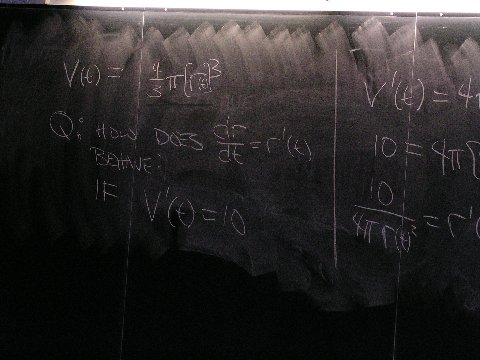 V(t) = 4/3 π[r(t)]³
Q: HOW DOES dr/dt = r'(t)
BEHAVE?
IF V'(t) = 10
V'(t) = 4π
10 = 4π[
10/4πr(t)² = r'(